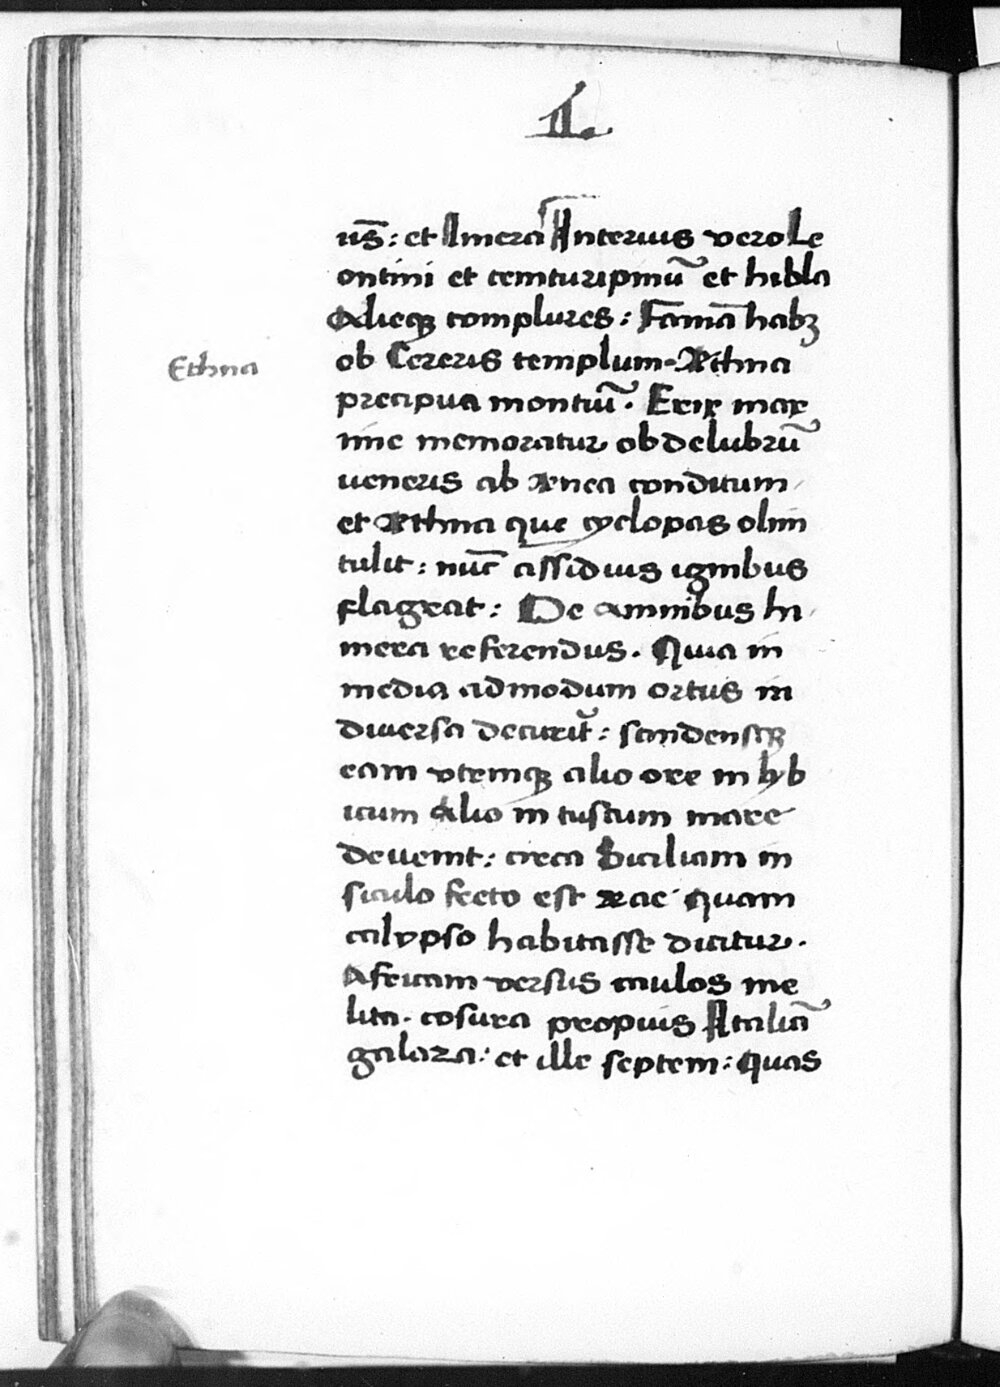 II.
us̄: et Imera Interius vero Le
ontini et centuripinū et hibla
Alieqꝫ complures: Famā habꝫ
ob Cereris templum. Æthna
Ethna
precipua montiū. Erix max
ime memoratur ob delubrū
ueneris ab ænea conditum
et æthna que cyclopas olim
tulit: nūc assiduis ignibus
flagrat: De amnibus hi
mera referendus. Quia in
media admodum ortus in
diuersa decurrit̄: scindensqꝫ
eam vtrimqꝫ alio ore in lyb
icum alio in tuscum mare
deuenit: circa Siciliam in
siculo freto est æae quam
calypso habitasse dicitur.
Africam versus caulos me
lita. cosura propius Italiā
galara: et ille septem: quas